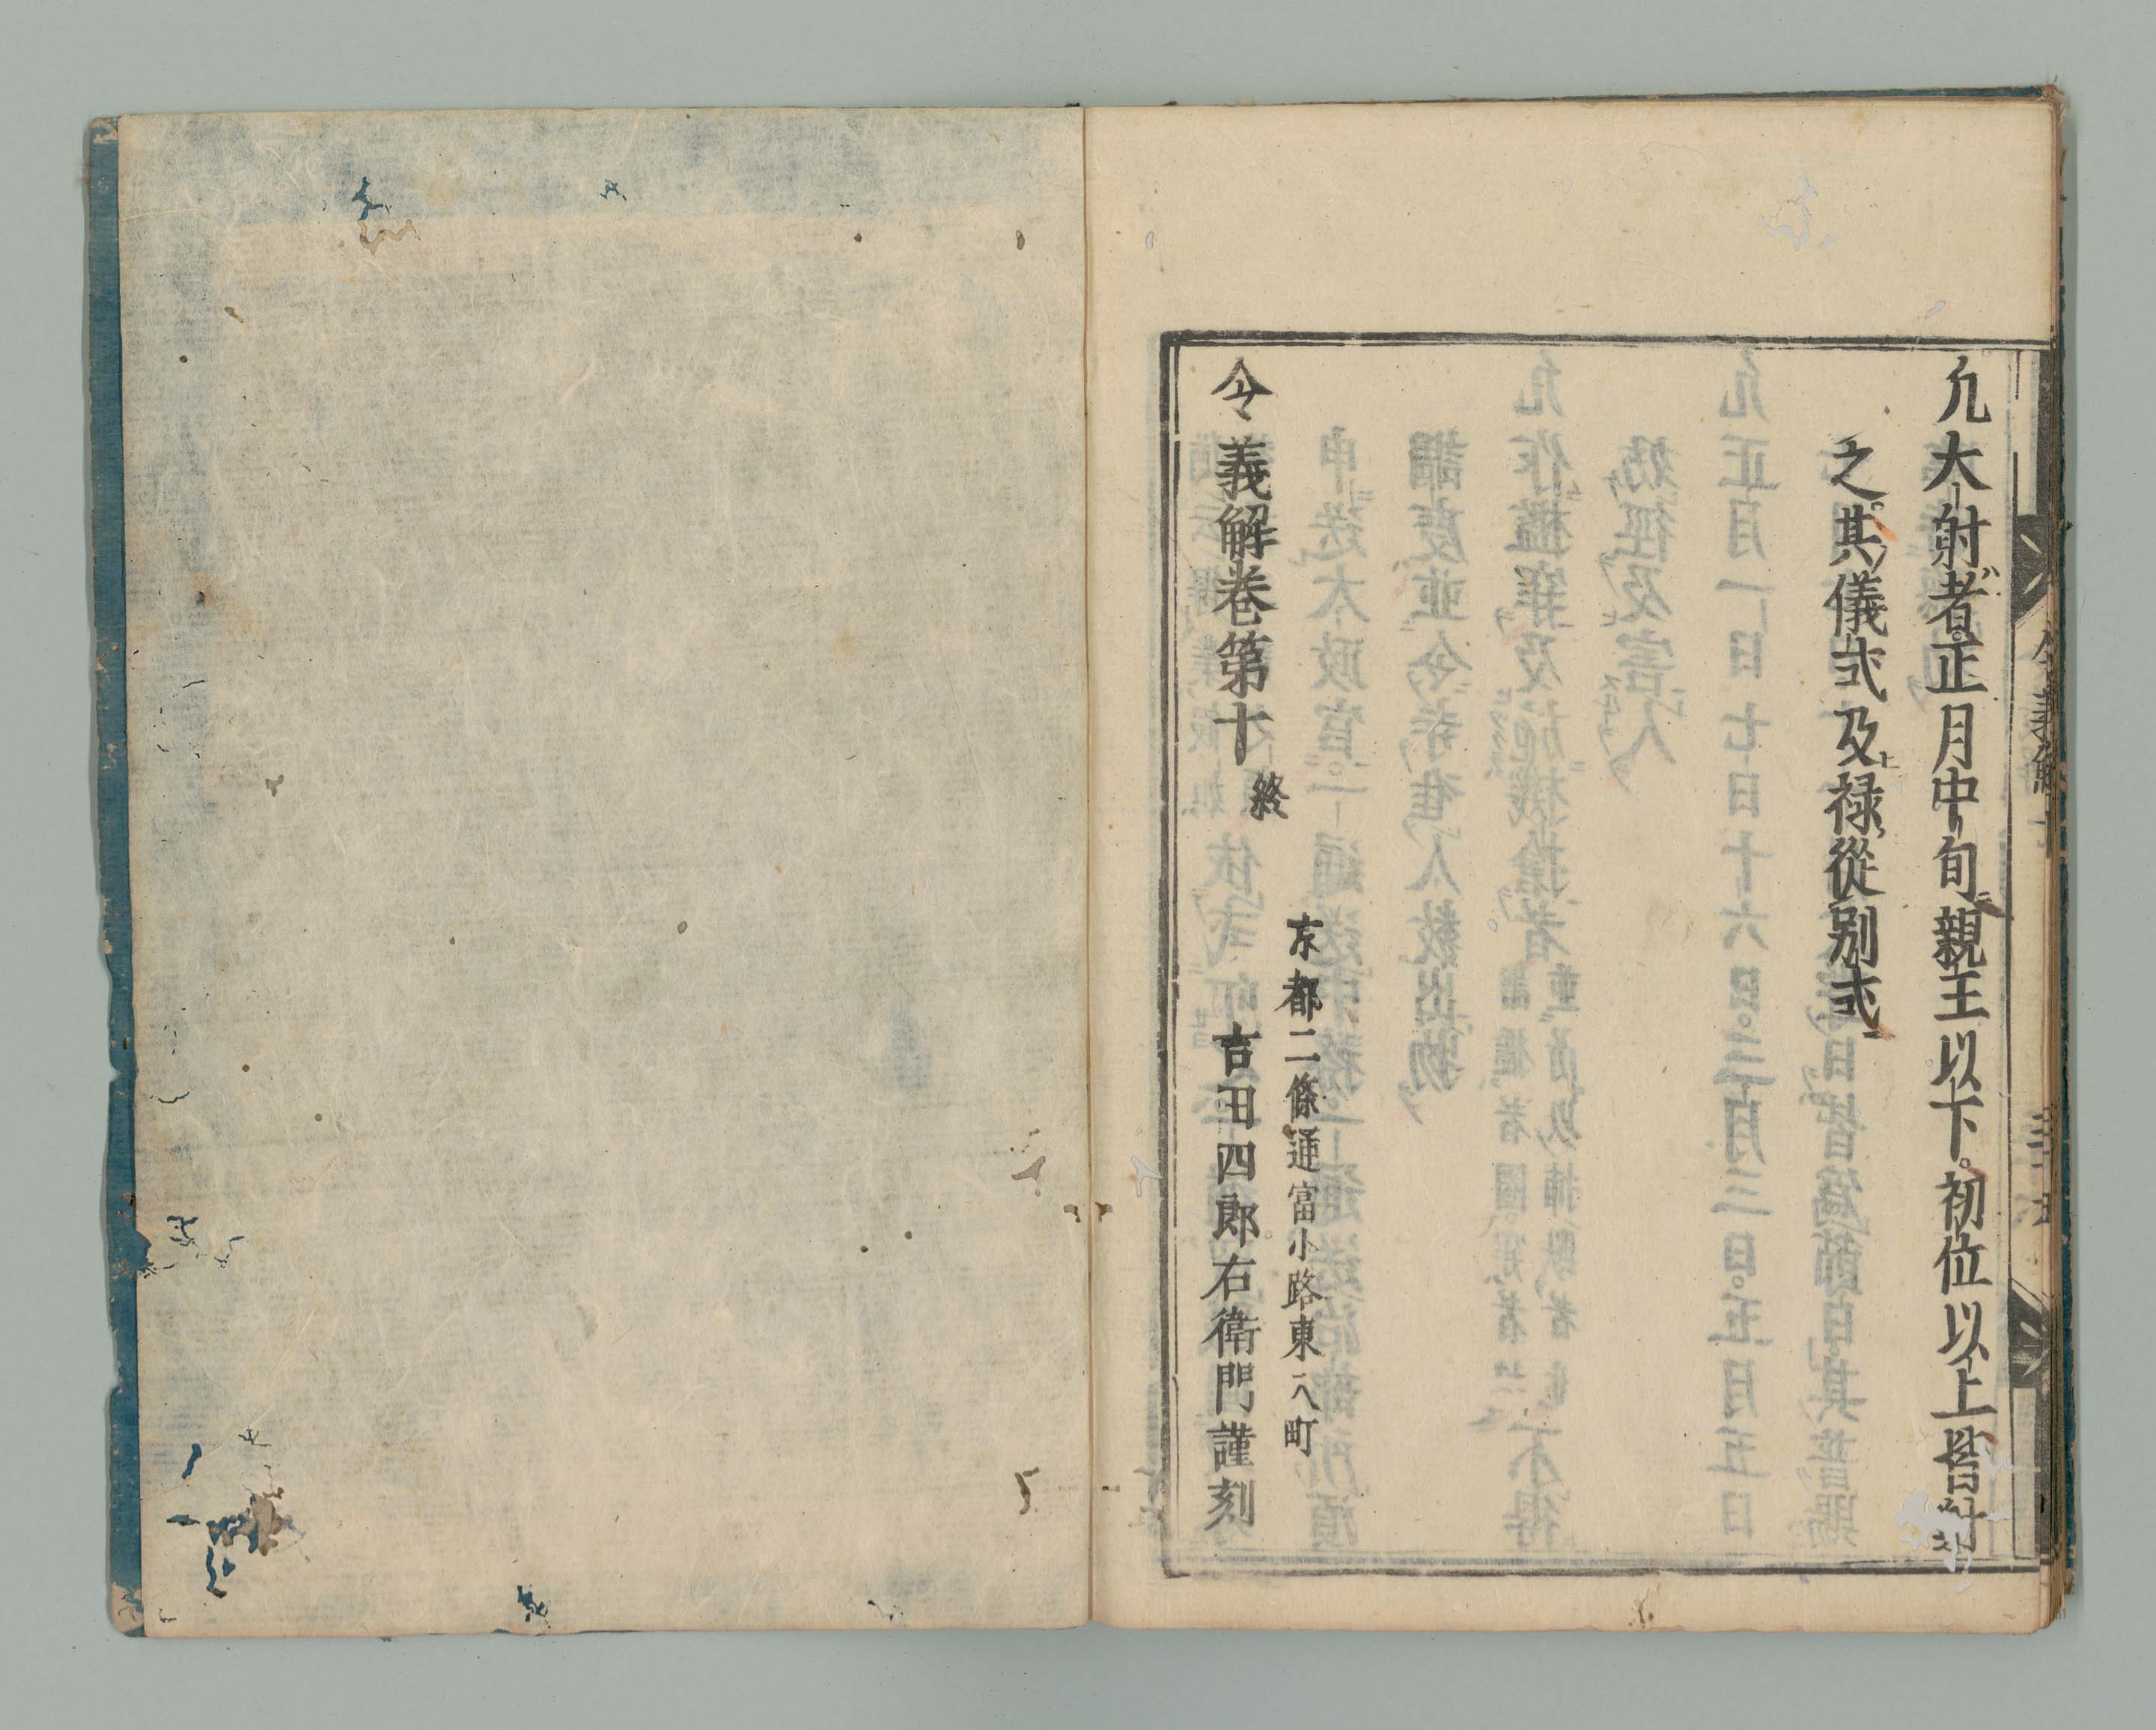 凢大射者正月中旬親王以下初位以上皆射
之其儀式及禄從别式
令義解卷第十終
京都二條通富小路東入町
吉田四郎右衛門謹刻